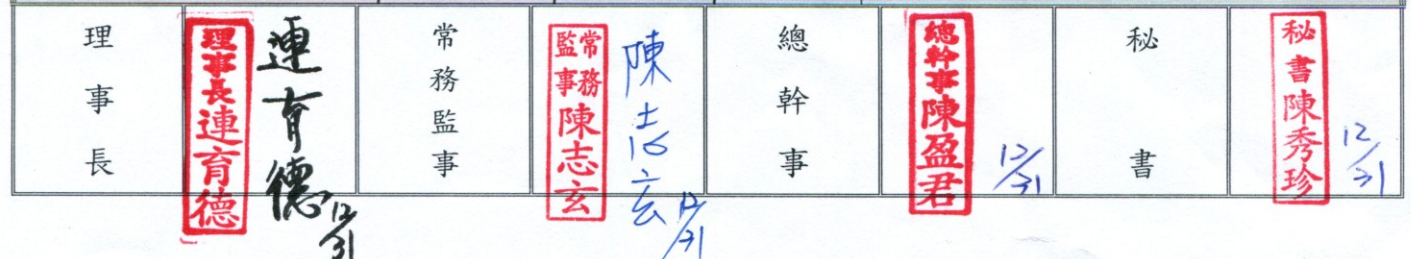 理事長
理事長連育德
連育德 12/31
常務監事
常務監事陳志玄
陳志玄 12/31
總幹事
總幹事陳盈君
12/31
秘書
秘書陳秀珍
12/31